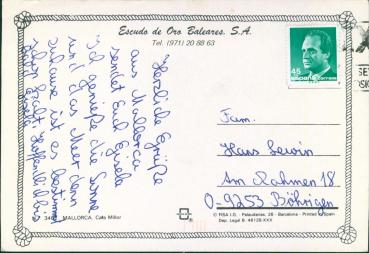 Escudo de Oro Baleares, S.A.
Tel. (971) 20 88 63
45
españa correos
Herzliche Grüße
aus Mallorca
sendet Euch Gisela
Ich genieße die Sonne
und das Meer denn
zuhause ist es bestimmt
schon kalt. Hoffentlich bis
bald Gisela
Fam.
Hans Lewin
Am Rahmen 18
O-9253 Böhrigen
MALLORCA, Cala Millor
© FISA I.G. - Palaudarias, 26 - Barcelona - Printed in Spain
Dep. Legal B. 46128-XXX